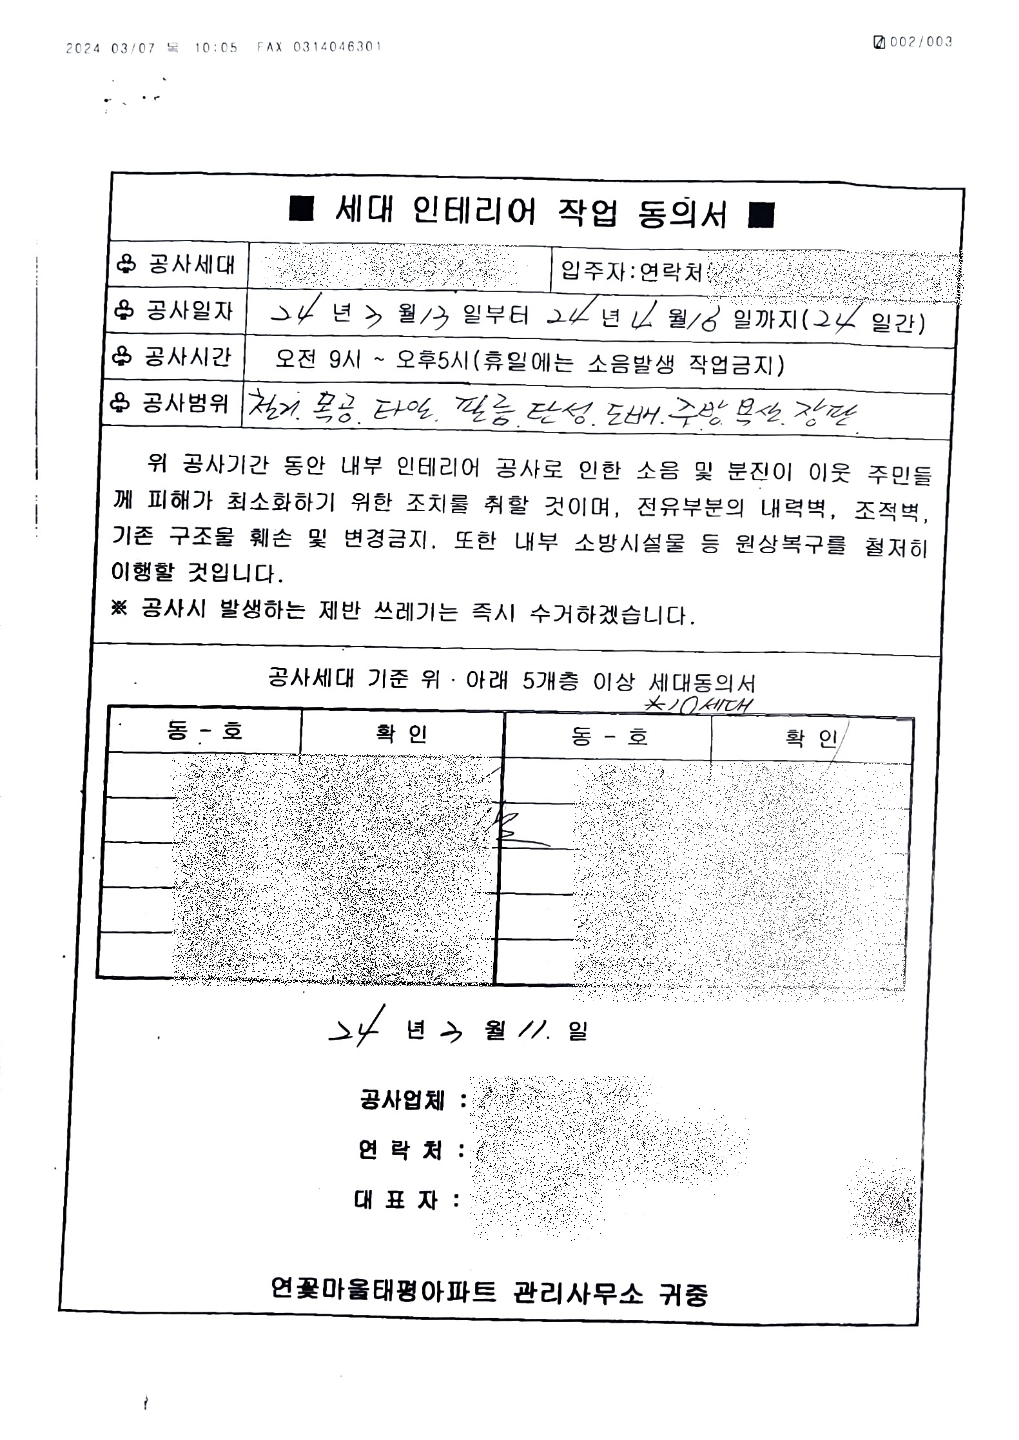 2024 03/07 목 10:05 FAX 0314046301 002/003
■ 세대 인테리어 작업 동의서 ■
♧ 공사세대 입주자:연락처:
♧ 공사일자 24년 3월 13일부터 24년 4월 16일까지(24일간)
♧ 공사시간 오전 9시 ~ 오후5시(휴일에는 소음발생 작업금지)
♧ 공사범위 철거. 목공. 타일. 필름. 탄성. 도배. 주방. 욕실. 장판.
위 공사기간 동안 내부 인테리어 공사로 인한 소음 및 분진이 이웃 주민들
께 피해가 최소화하기 위한 조치를 취할 것이며, 전유부분의 내력벽, 조적벽,
기존 구조물 훼손 및 변경금지. 또한 내부 소방시설물 등 원상복구를 철저히
이행할 것입니다.
※ 공사시 발생하는 제반 쓰레기는 즉시 수거하겠습니다.
공사세대 기준 위·아래 5개층 이상 세대동의서
*10세대
동 - 호 확 인 동 - 호 확 인
24 년 3 월 11. 일
공사업체 :
연 락 처 :
대 표 자 :
연꽃마을태평아파트 관리사무소 귀중